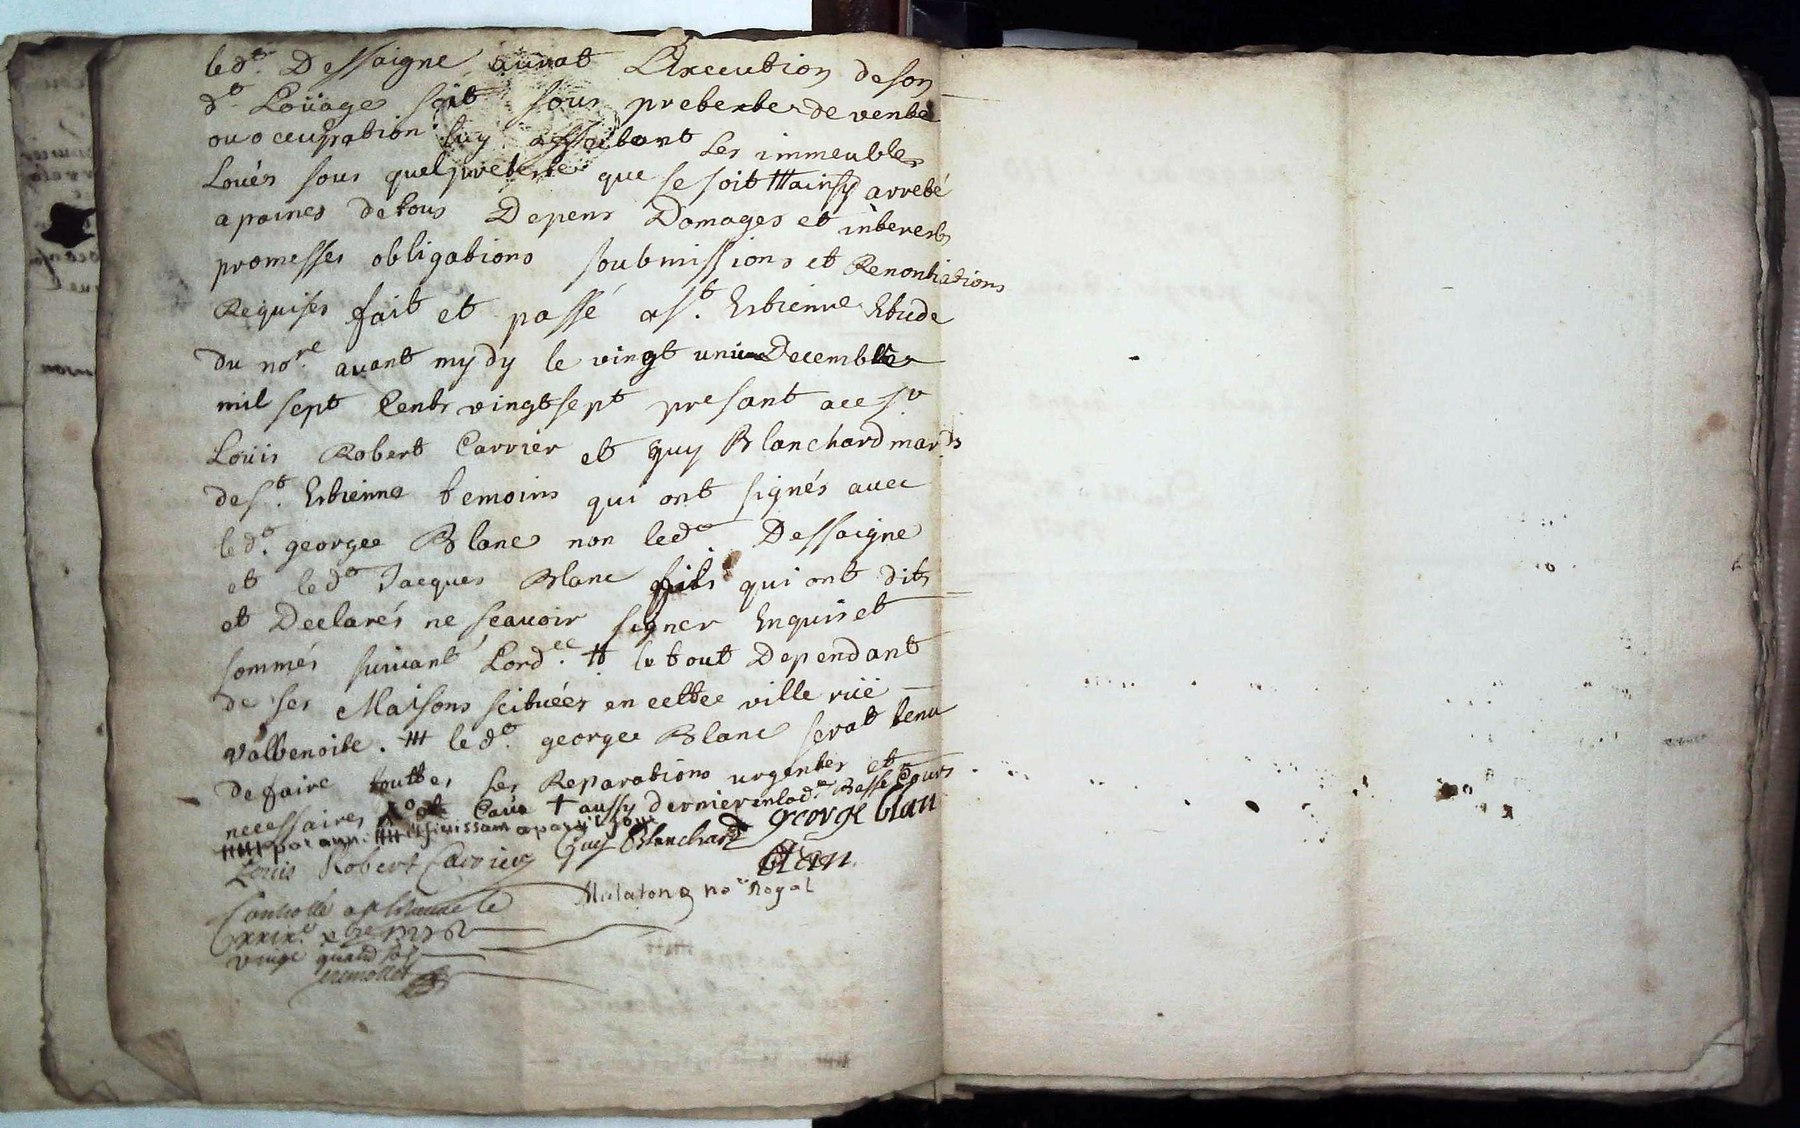 led.t Dessaigne aurat L'Execution de son
d.t Loüage soit sous pretexte de vente
ou occupration luy affectant Les immeubles
Loués sous quel pretexte que se soit ttt ainsy arreté
a paines de tous Depens Domages et interests
promesses obligations soubmissions et Renontiations
Requises fait et passé a S.t Estienne Etude
du no.re avant mydy le vingt un Decembre
mil sept Cents vingt sept presant ace s.r
Loüis Robert Carrier et guy Blanchard mar.ds
de S.t Estienne temoins qui ont signés avec
led.t george Blanc non led.t Dessaigne
et led.t Jacques Blanc fils qui ont dits
et Declarés ne sçavoir signer Enquis et
sommés suivant Lord.ce tt le tout Dependant
de ses Maisons scituées en cette ville rüe
valbenoite. ttt le d.t george Blanc serat tenu
de faire touttes les Reparations urgentes et
necessaires Cave † aussy dernier en lad.e Basse Cours
tttt par an
Louis Robert Carrier Guy Blanchard george blan
Mulaton no.re Royal
Controllé a S.t Estienne le
xxix.e x.bre 1727
vingt quatre sols